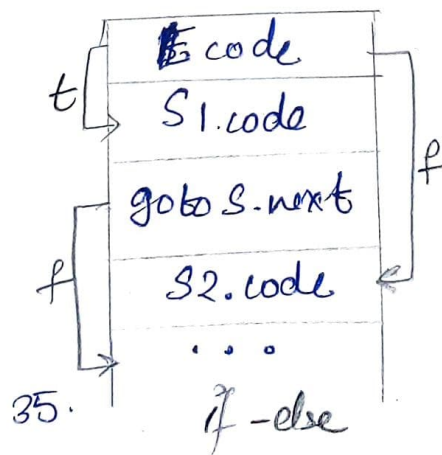 E code
t
S1.code
f
goto S.next
f
S2.code
...
35.
if-else